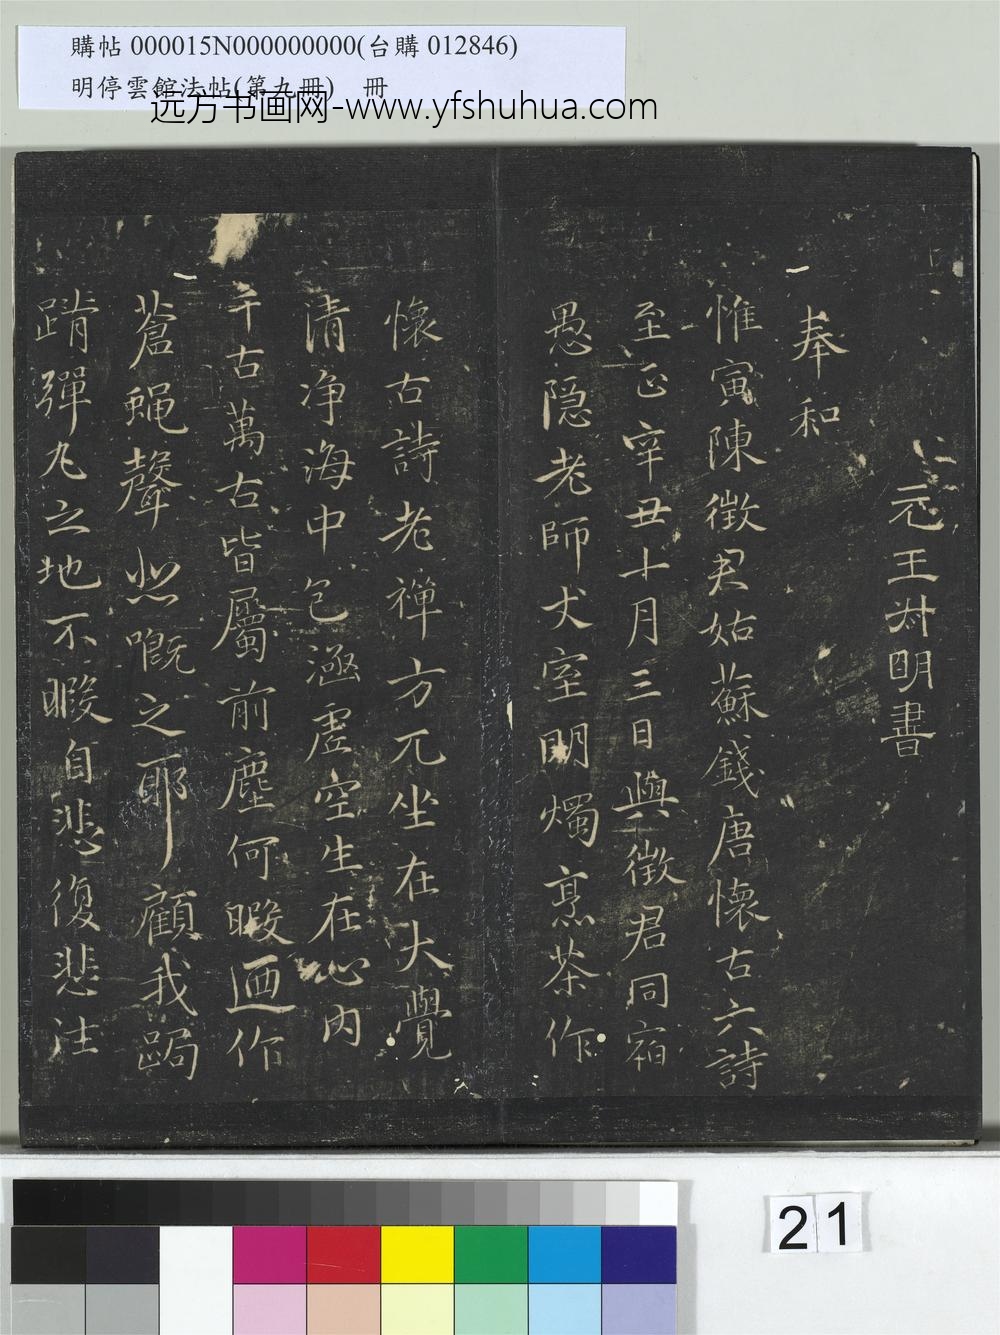 購帖 000015N000000000(台購 012846)
明停雲館法帖(第九冊) 冊
远方书画网-www.yfshuhua.com
元王叔明書
奉和
惟寅陳徵君姑蘇錢唐懷古六詩
至正辛丑十月三日與徵君同宿
愚隱老師丈室明燭烹茶作
懷古詩老禪方兀坐在大覺
清净海中包涵虛空生在心内
千古萬古皆屬前塵何暇迺作
蒼蠅聲以嘅之耶顧我跼
蹐彈丸之地不暇自悲復悲往
21